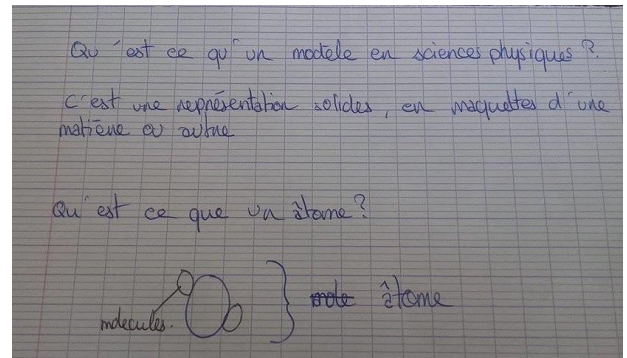 Qu'est ce qu'un modèle en sciences physiques ?
C'est une représentation solides, en maquettes d'une
matière ou autre
Qu'est ce que un âtome ?
molécules.
âtome